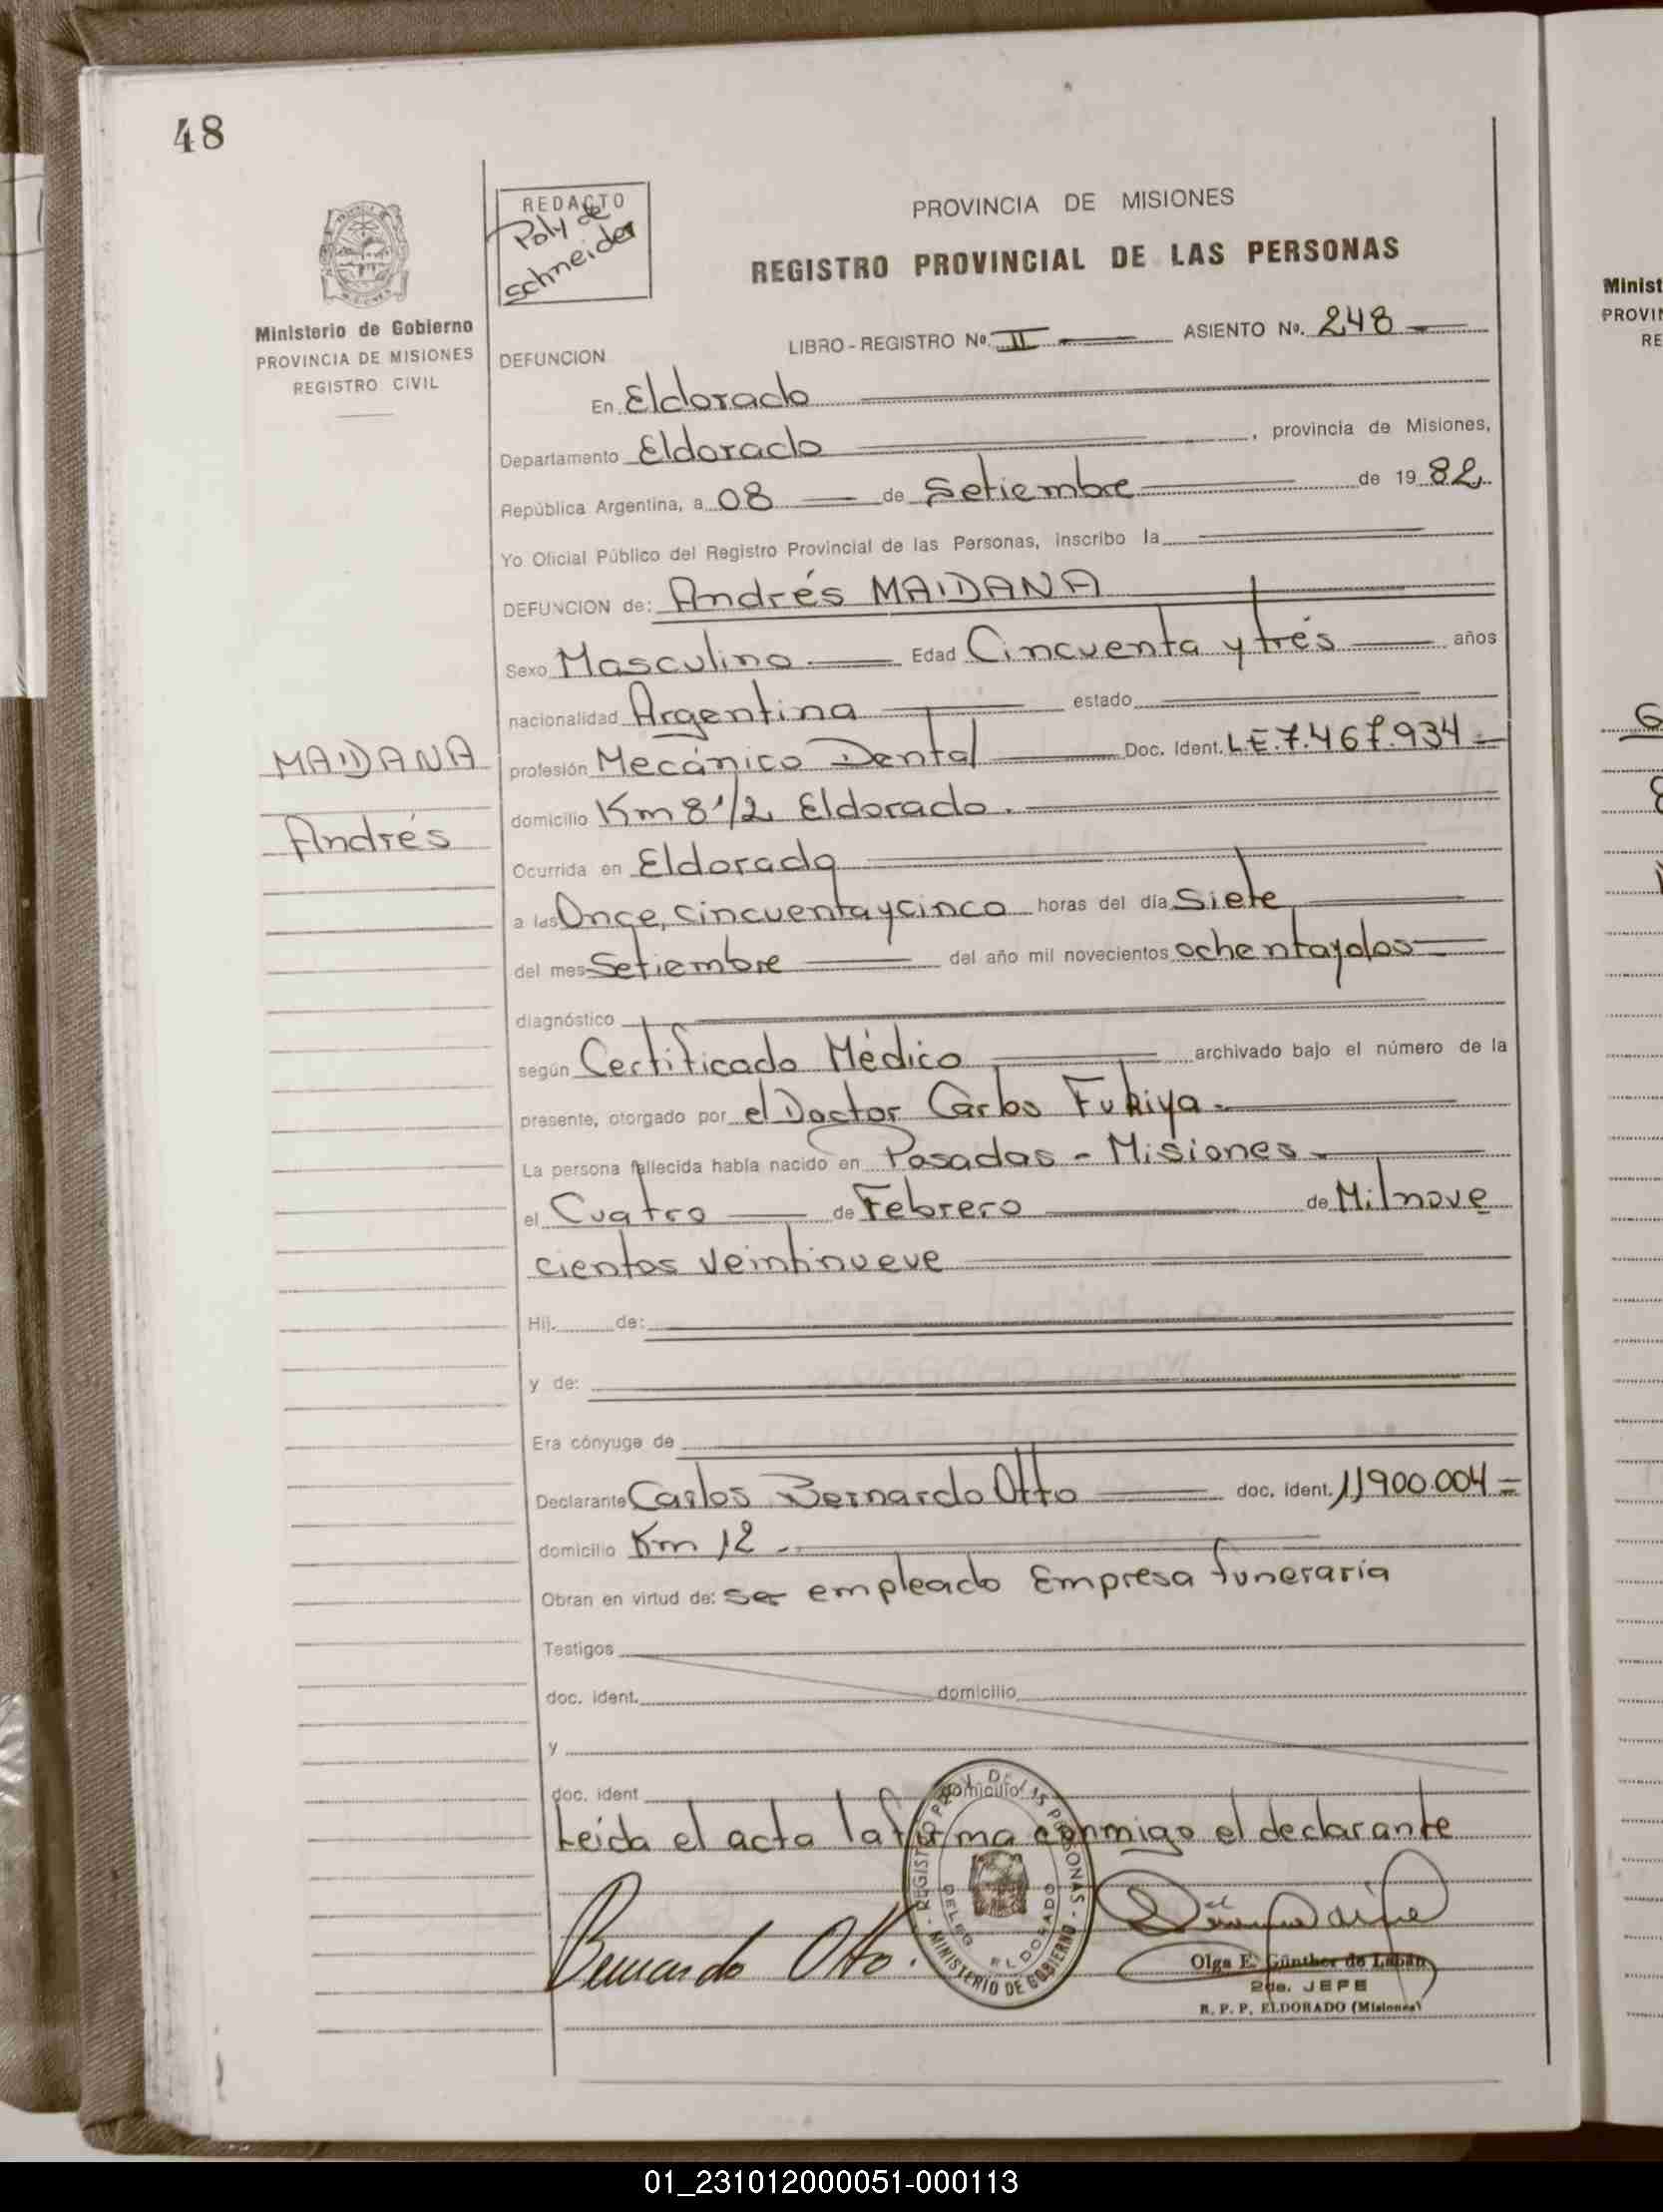 48
REDACTO
Poly de
Schneider
PROVINCIA DE MISIONES
REGISTRO PROVINCIAL DE LAS PERSONAS
Ministerio de Gobierno
PROVINCIA DE MISIONES
REGISTRO CIVIL
DEFUNCION
LIBRO - REGISTRO Nº II ASIENTO Nº. 248
En Eldorado
Departamento Eldorado, provincia de Misiones,
República Argentina, a 08 de Setiembre de 1982
Yo Oficial Público del Registro Provincial de las Personas, inscribo la
DEFUNCION de: Andrés MAIDANA
Sexo Masculino Edad Cincuenta y trés años
nacionalidad Argentina estado
MAIDANA
Andrés
profesión Mecánico Dental Doc. Ident. L.E. 7.467.934
domicilio Km 8 1/2 Eldorado.
Ocurrida en Eldorado
a las Once, cincuenta y cinco horas del día Siete
del mes Setiembre del año mil novecientos ochentaydos
diagnóstico
según Certificado Médico archivado bajo el número de la
presente, otorgado por el Doctor Carlos Fukiya.
La persona fallecida había nacido en Posadas - Misiones
el Cuatro de Febrero de Mil nove
cientos veintinueve
Hij. de:
y de:
Era cónyuge de
Declarante Carlos Bernardo Otto doc. ident. 11900.004
domicilio Km 12
Obran en virtud de: ser empleado Empresa funeraria
Testigos
doc. ident. domicilio
y
doc. ident domicilio
Leida el acta la firma conmigo el declarante
Bernardo Otto.
MINISTERIO DE GOBIERNO
DELEG ELDORADO
Olga E. Günther de Labán
2da. JEFE
R. P. P. ELDORADO (Misiones)
Minist
PROVIN
RE
01_231012000051-000113